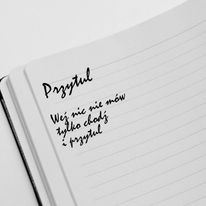 Przytul
Weź nic nie mów
tylko chodź
i przytul